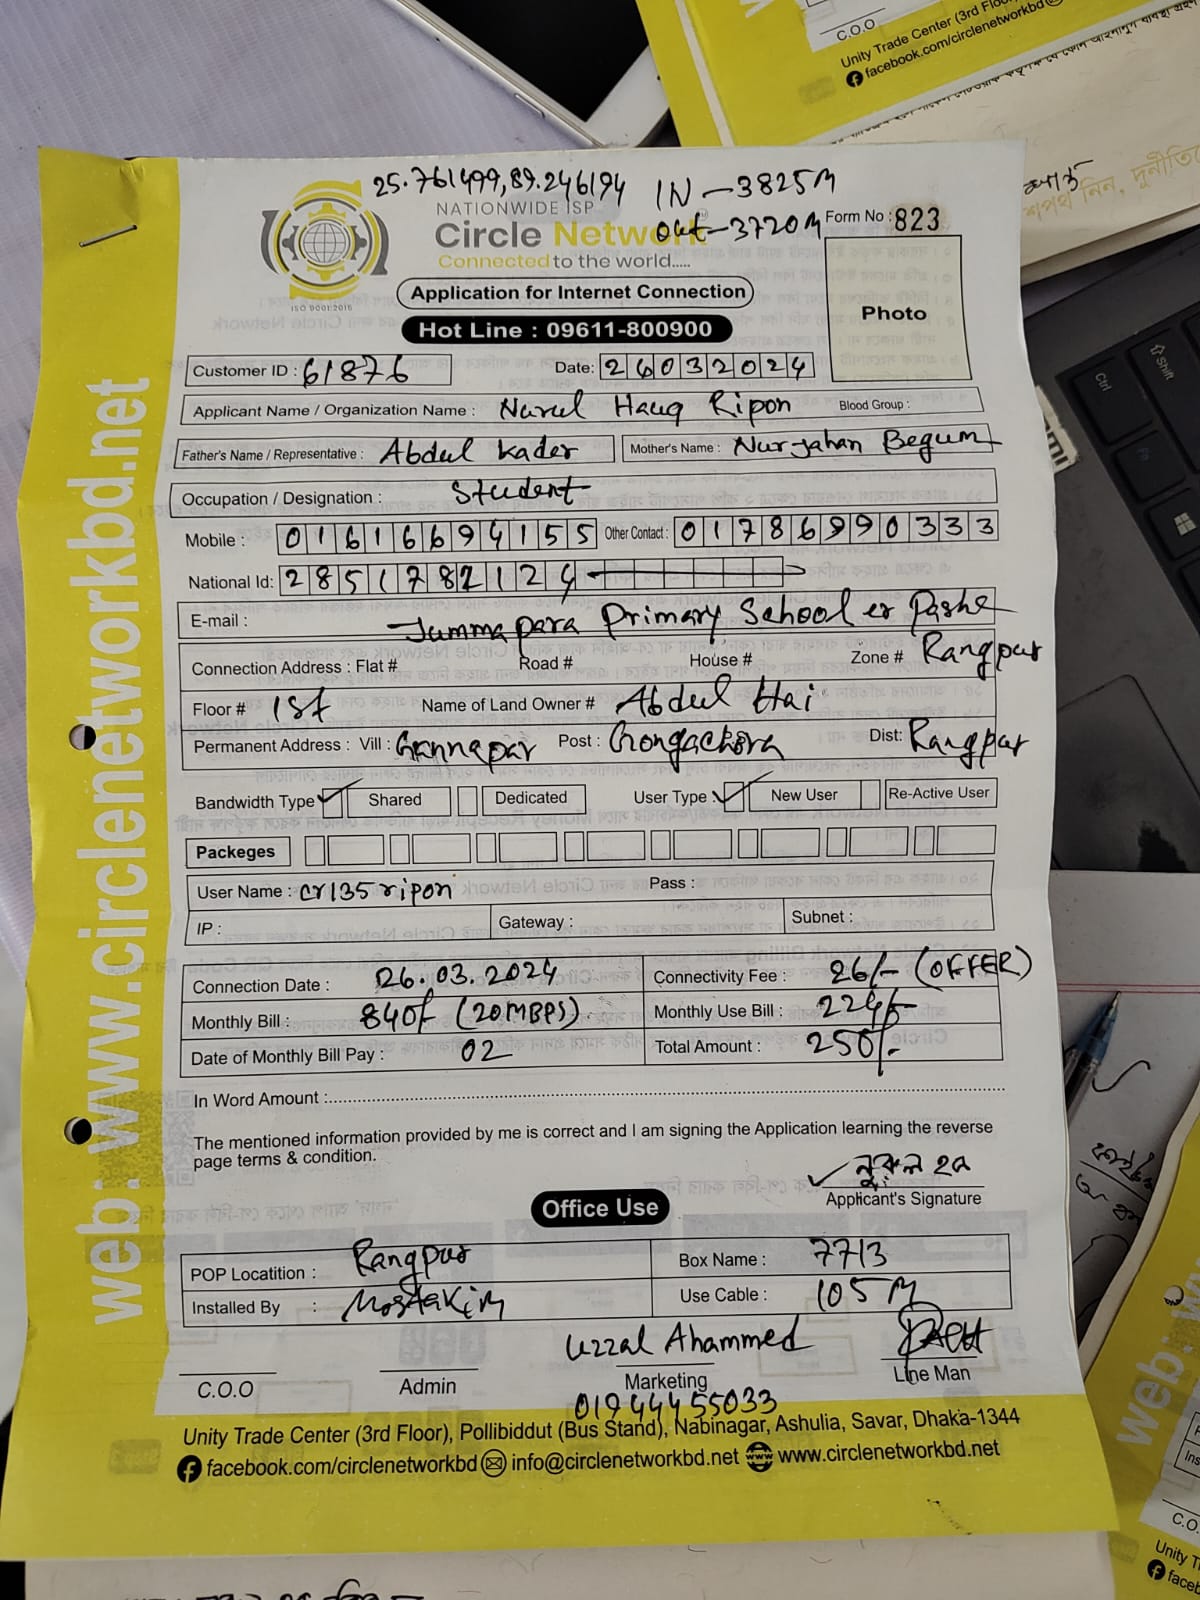 C.O.O
Unity Trade Center (3rd Floor
facebook.com/circlenetworkbd
25.761499,89.246194 IN-3825M
NATIONWIDE ISP
Out-3720M
Form No : 823
Circle Network
Connected to the world.....
ISO 9001:2015
Photo
Application for Internet Connection
Hot Line : 09611-800900
Customer ID : 61876 Date: 26032024
Applicant Name / Organization Name : Nurul Haug Ripon Blood Group :
Father's Name / Representative : Abdul Kader Mother's Name : Nur Jahan Begum
Occupation / Designation : Student
Mobile : 01616694155 Other Contact : 01786990333
National Id: 2851782124
E-mail :
Jummapara Primary School er Pashe
Connection Address : Flat # Road # House # Zone # Rangpur
Floor # 1st Name of Land Owner # Abdul Hai
Permanent Address : Vill : Gannapar Post : Gongachora Dist: Rangpur
Bandwidth Type ✓ Shared Dedicated User Type : ✓ New User Re-Active User
Packeges
User Name : cr135ripon Pass :
IP : Gateway : Subnet :
Connection Date : 26.03.2024 Connectivity Fee : 26/- (OFFER)
Monthly Bill : 840/- (20MBPS) Monthly Use Bill : 224/-
Date of Monthly Bill Pay : 02 Total Amount : 250/-
In Word Amount :
The mentioned information provided by me is correct and I am signing the Application learning the reverse
page terms & condition.
নুরুল হক
Applicant's Signature
Office Use
POP Locatition : Rangpur Box Name : 7713
Installed By : Mostakim Use Cable : 105M
Uzzal Ahammed
C.O.O Admin Marketing Line Man
01944455033
Unity Trade Center (3rd Floor), Pollibiddut (Bus Stand), Nabinagar, Ashulia, Savar, Dhaka-1344
facebook.com/circlenetworkbd info@circlenetworkbd.net www.circlenetworkbd.net
web: www.circlenetworkbd.net
Ctrl
Shift
C.O.
Unity T